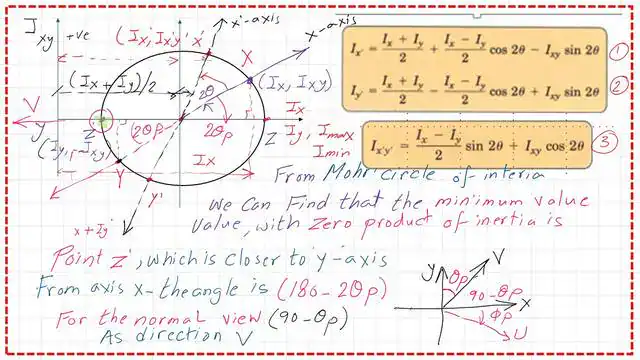 I_xy +ve
(I_x', I_x'y' x'
x'-axis
x-axis
X
(I_x + I_y)/2
2θ
(I_x, I_xy)
V
y
Z'
(2θp)
2θp
I_x
Z
I_y, I_max
I_min
(I_y, -I_xy)
Y
I_x
Y'
x + I_y'
I_x' = (I_x + I_y)/2 + (I_x − I_y)/2 cos 2θ − I_xy sin 2θ ①
I_y' = (I_x + I_y)/2 − (I_x − I_y)/2 cos 2θ + I_xy sin 2θ ②
I_x'y' = (I_x − I_y)/2 sin 2θ + I_xy cos 2θ ③
From Mohr circle of interia
we can Find that the minimum value
Value, with Zero product of inertia is
Point Z', which is closer to y-axis
From axis x-the angle is (180-2θp)
For the normal view (90-θp)
As direction V
y
θp
V
90-θp
x
φp
U